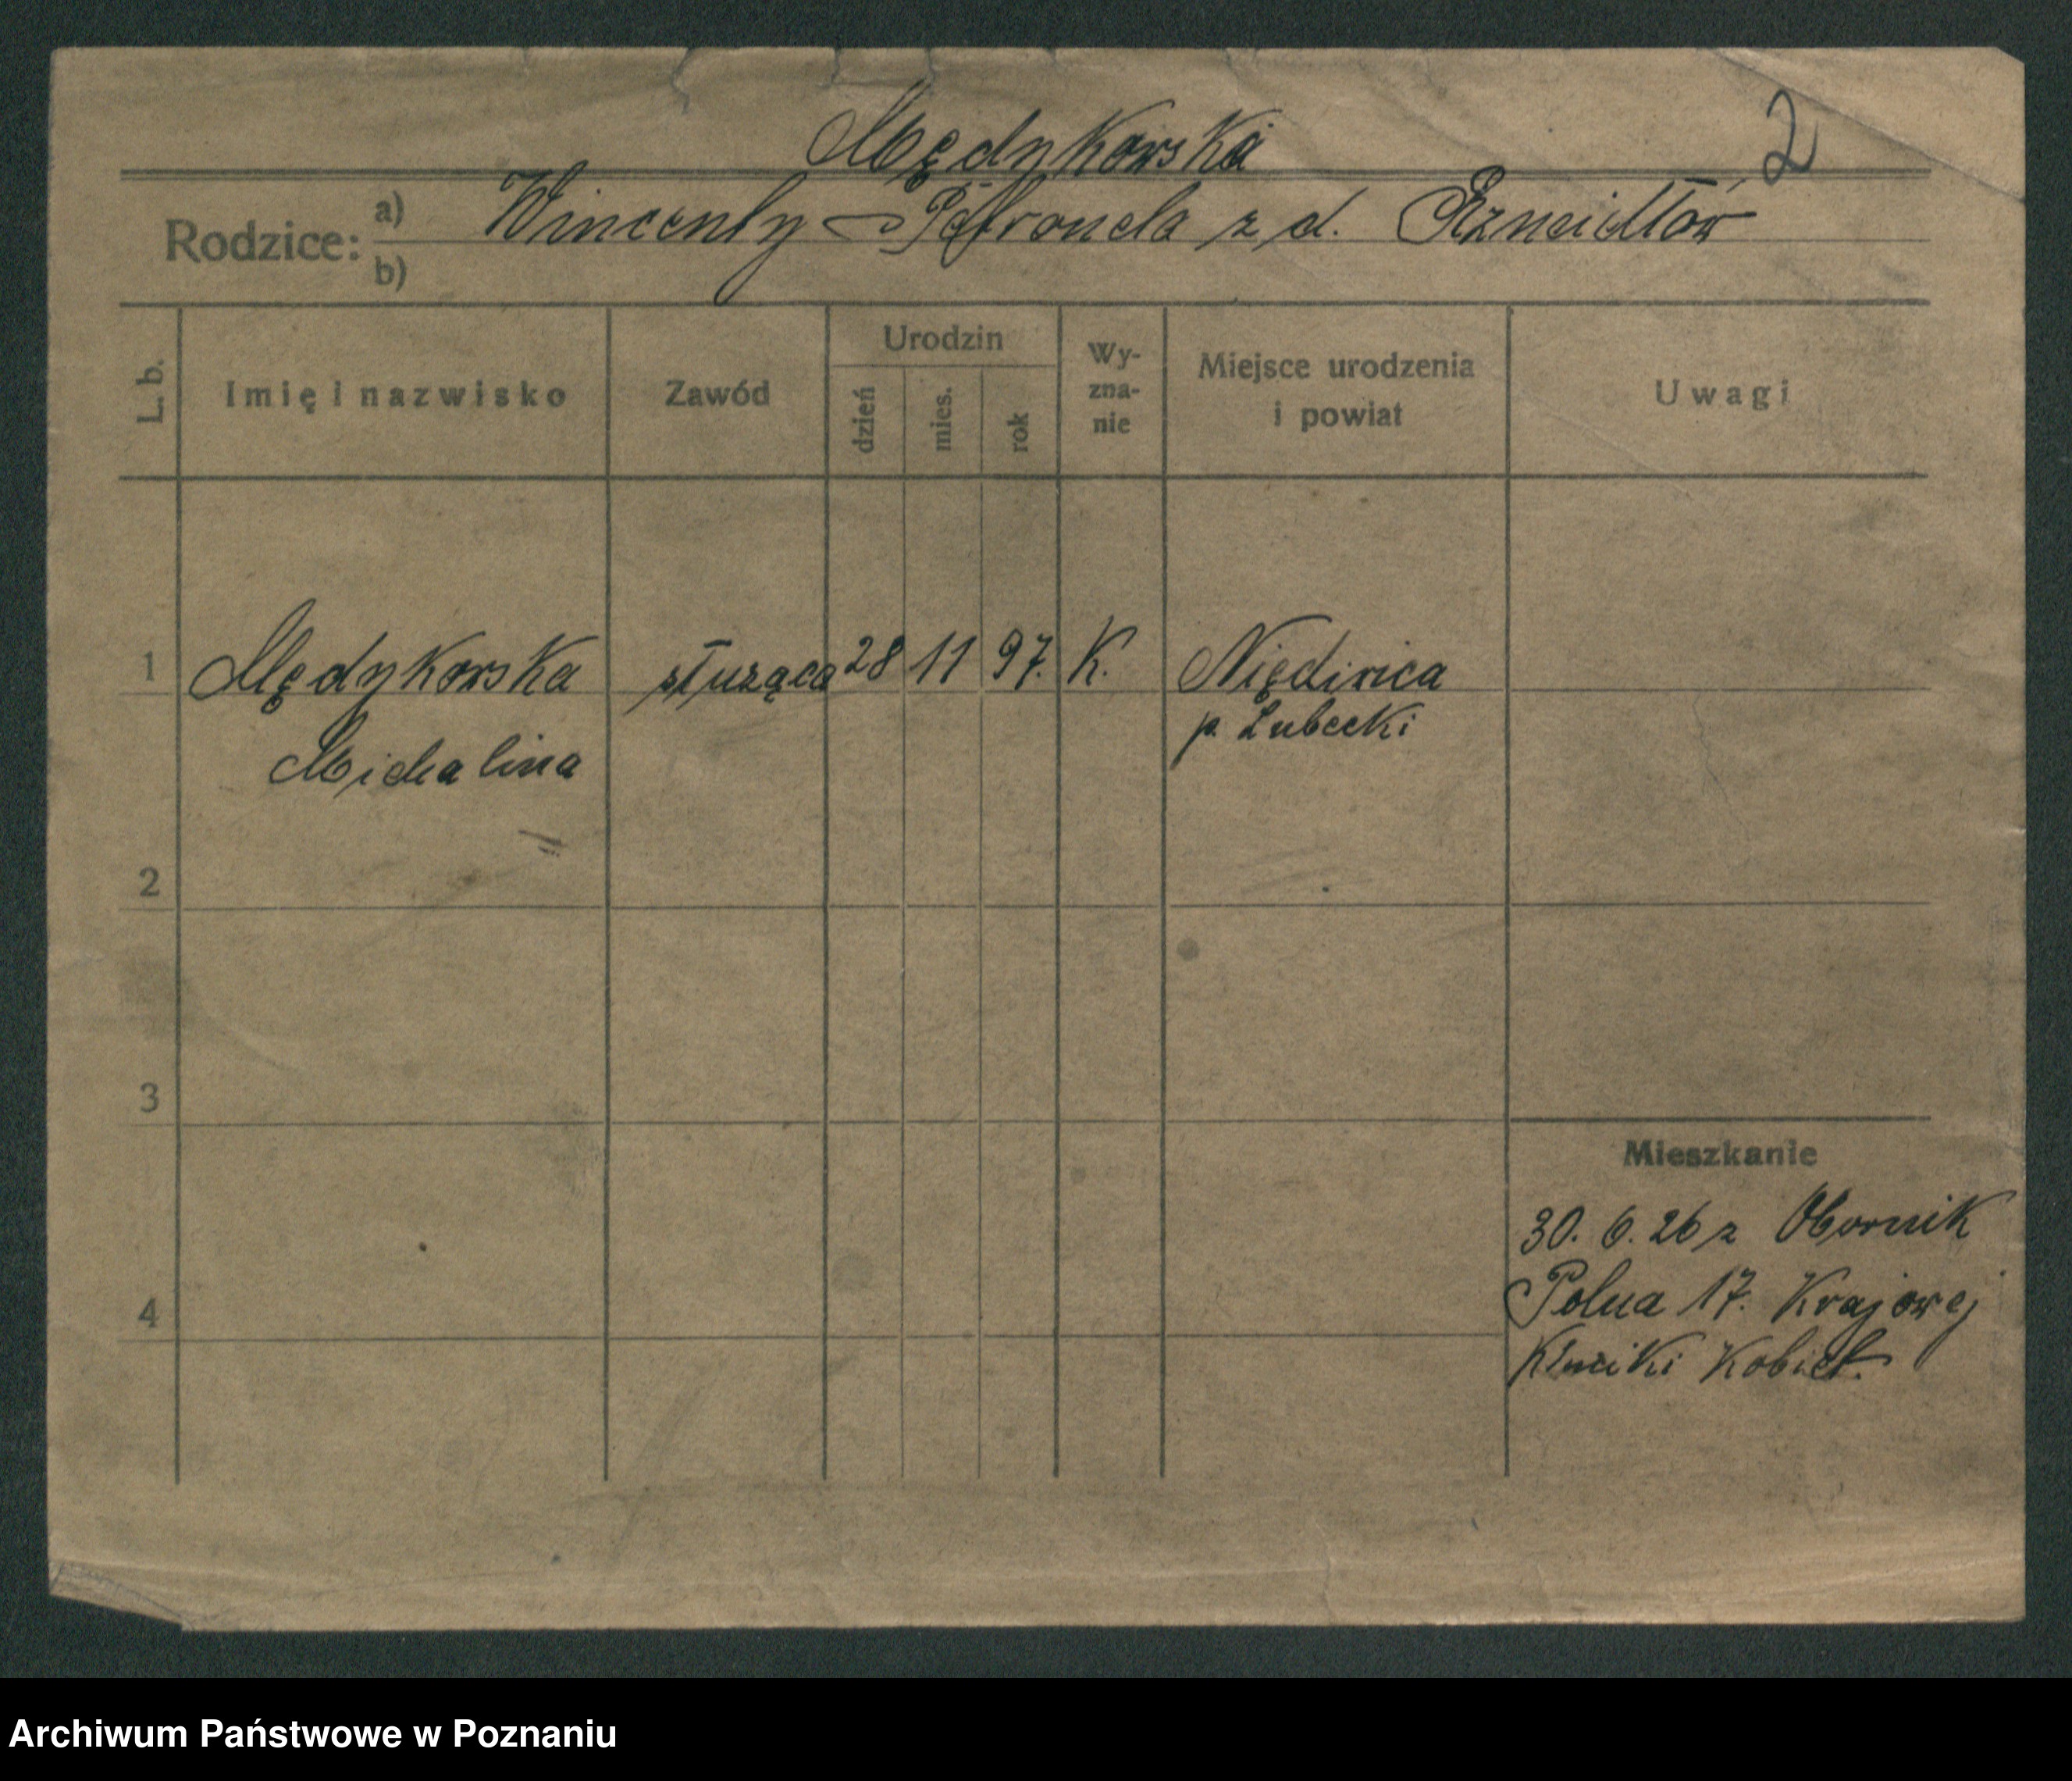 Mędykowska
2
Rodzice: a) Wincenty – Petronela z d.
b)
L. b.
Imię i nazwisko
Zawód
Urodzin
dzień
mies.
rok
Wy-
zna-
nie
Miejsce urodzenia
i powiat
Uwagi
1 Mędykowska służąca 28 11 97. K.
Michalina p. Lubecki
2
3
Mieszkanie
30. 6. 26 z Obornik
4 Polna 17. Krajowej
Kliniki Kobiet.
Archiwum Państwowe w Poznaniu